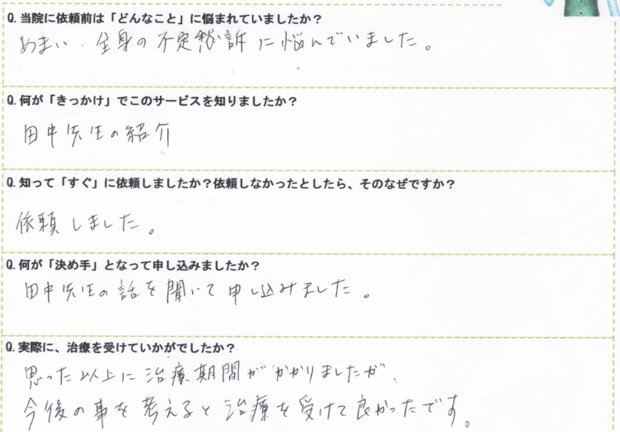 Q.当院に依頼前は「どんなこと」に悩まれていましたか？
めまい、全身の不定愁訴に悩んでいました。
Q.何が「きっかけ」でこのサービスを知りましたか？
田中先生の紹介
Q.知って「すぐ」に依頼しましたか？依頼しなかったとしたら、そのなぜですか？
依頼しました。
Q.何が「決め手」となって申し込みましたか？
田中先生の話を聞いて申し込みました。
Q.実際に、治療を受けていかがでしたか？
思った以上に治療期間がかかりましたが、
今後の事を考えると治療を受けて良かったです。